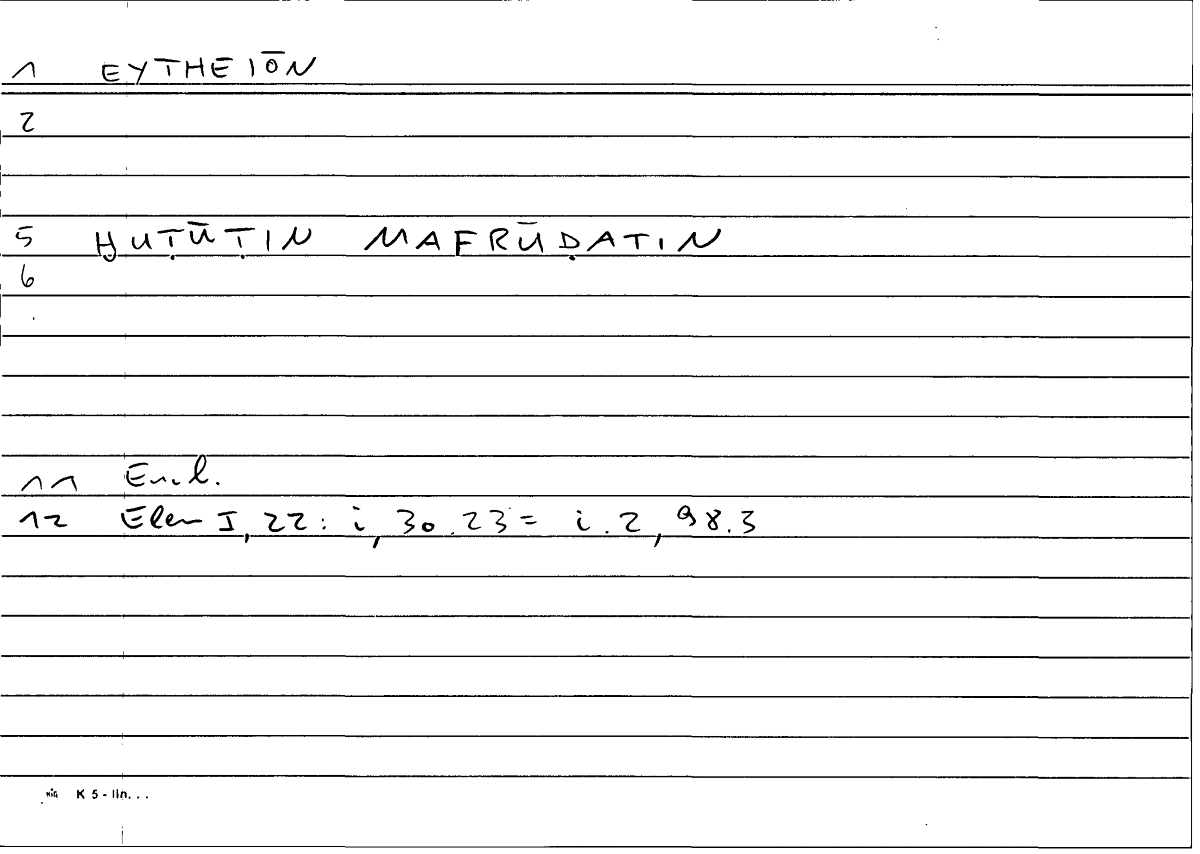 1 EYTHEIŌN
2
5 ḪUṬŪṬIN MAFRŪḌATIN
6
11 Eucl.
12 Elem I, 22 : i, 30.23 = i.2, 98.3
K 5 - lin...